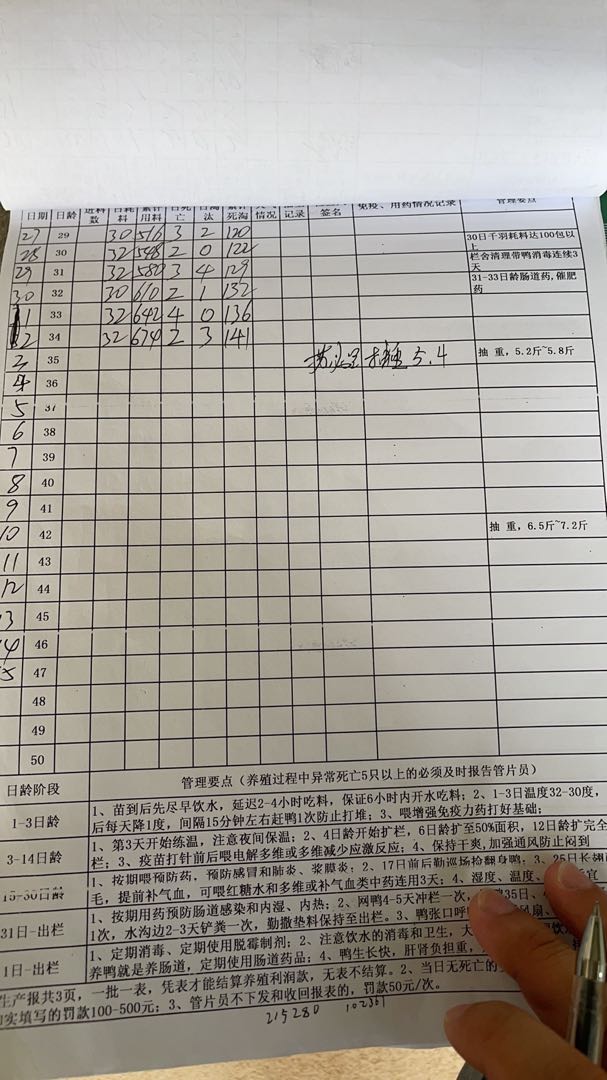 日期 日龄 进料数 日耗料 累计用料 日死亡 日淘汰 累计死淘 情况 记录 签名 免疫、用药情况记录 管理要点
27 29 30 516 3 2 120
28 30 32 548 2 0 122 30日千羽耗料达100包以上
29 31 32 580 3 4 129 栏舍清理带鸭消毒连续3天
30 32 30 610 2 1 132 31-33日龄肠道药,催肥药
1 33 32 642 4 0 136
2 34 32 674 2 3 141
3 35 抽重 5.4 抽 重，5.2斤~5.8斤
4 36
5 37
6 38
7 39
8 40
9 41
10 42 抽 重，6.5斤~7.2斤
11 43
12 44
13 45
14 46
15 47
48
49
50
日龄阶段 管理要点（养殖过程中异常死亡5只以上的必须及时报告管片员）
1-3日龄 1、苗到后先尽早饮水，延迟2-4小时吃料，保证6小时内开水吃料；2、1-3日温度32-30度，
后每天降1度，间隔15分钟左右赶鸭1次防止打堆；3、喂增强免疫力药打好基础；
3-14日龄 1、第3天开始练温，注意夜间保温；2、4日龄开始扩栏，6日龄扩至50%面积，12日龄扩完全
栏；3、疫苗打针前后喂电解多维或多维减少应激反应；4、保持干爽,加强通风防止闷到
15-30日龄 1、按期喂预防药，预防感冒和肺炎、浆膜炎；2、17日前后勤巡场捡翻身鸭；3、25日长翅
毛，提前补气血，可喂红糖水和多维或补气血类中药连用3天；4、湿度、温度、
31日-出栏 1、按期用药预防肠道感染和内湿、内热；2、网鸭4-5天冲栏一次，35日、
1次，水沟边2-3天铲粪一次，勤撒垫料保持至出栏。3、鸭张口呼 风扇、
1日-出栏 1、定期消毒、定期使用脱霉制剂；2、注意饮水的消毒和卫生，
养鸭就是养肠道，定期使用肠道药品；4、鸭生长快，肝肾负担重，
生产报共3页，一批一表，凭表才能结算养殖利润款，无表不结算。2、当日无死亡的
如实填写的罚款100-500元；3、管片员不下发和收回报表的，罚款50元/次。
215280 102361